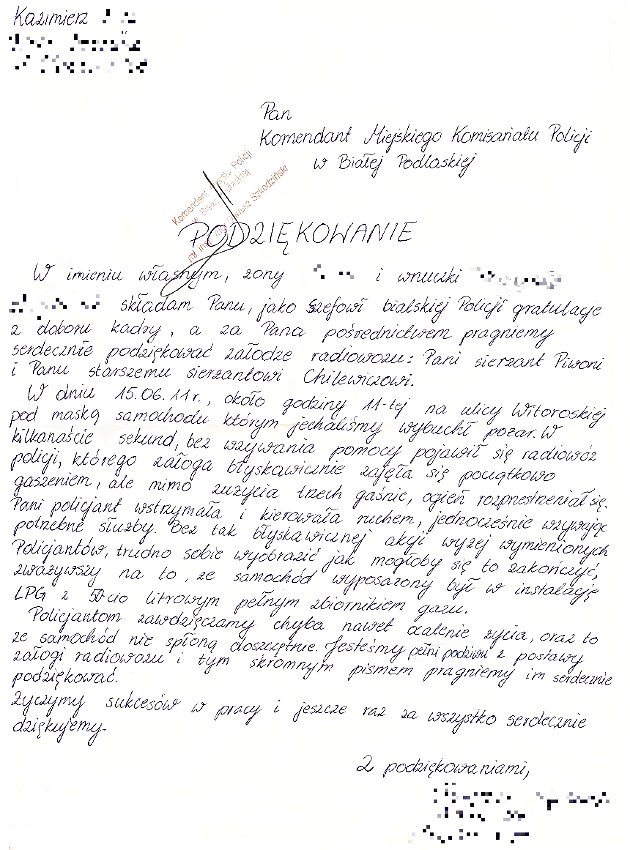 Kazimierz
Pan
Komendant Miejskiego Komisariatu Policji
w Białej Podlaskiej
Komendant Policji
PODZIĘKOWANIE
W imieniu własnym, żony i wnuczki
składam Panu, jako szefowi bialskiej Policji gratulacje
z doboru kadry, a za Pana pośrednictwem pragniemy
serdecznie podziękować załodze radiowozu: Pani sierżant Piwoni
i Panu starszemu sierżantowi Chilewiczowi.
W dniu 15.06.11r., około godziny 11-tej na ulicy Witoroskiej
pod maską samochodu którym jechaliśmy wybuchł pożar. W
kilkanaście sekund, bez wzywania pomocy pojawił się radiowóz
policji, którego załoga błyskawicznie zajęła się początkowo
gaszeniem, ale mimo zużycia trzech gaśnic, ogień rozprzestrzeniał się.
Pani policjant wstrzymała i kierowała ruchem, jednocześnie wzywając
potrzebne służby. Bez tak błyskawicznej akcji wyżej wymienionych
Policjantów, trudno sobie wyobrazić jak mogłoby się to zakończyć,
zważywszy na to, że samochód wyposażony był w instalację
LPG z 50-cio litrowym pełnym zbiornikiem gazu.
Policjantom zawdzięczamy chyba nawet ocalenie życia, oraz to
że samochód nie spłoną doszczętnie. Jesteśmy pełni podziwu z postawy
załogi radiowozu i tym skromnym pismem pragniemy im serdecznie
podziękować.
Życzymy sukcesów w pracy i jeszcze raz za wszystko serdecznie
dziękujemy.
Z podziękowaniami,